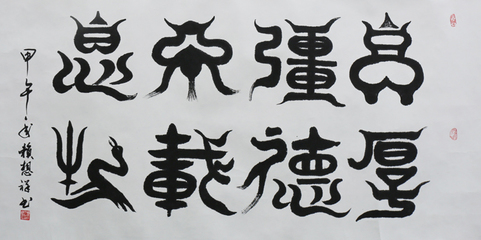 自彊不息
厚德載物
甲午年想祥书